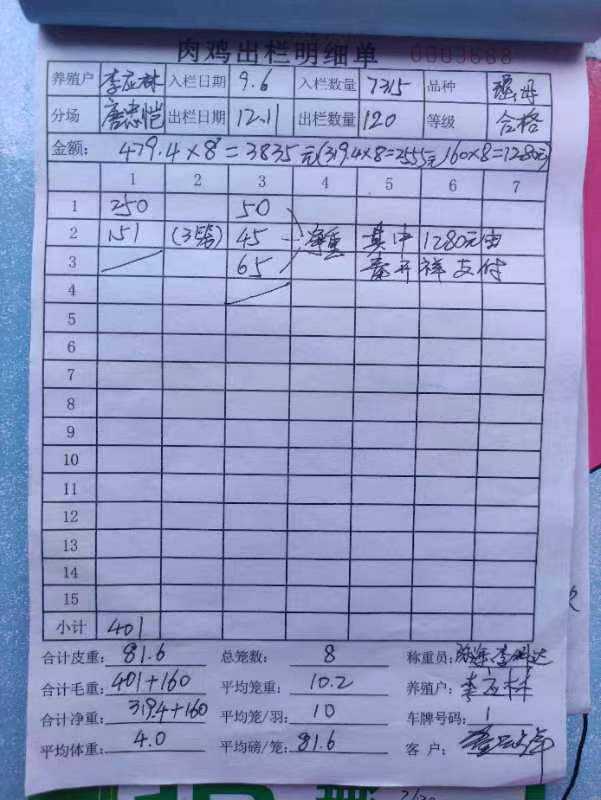 肉鸡出栏明细单 0003688
养殖户 李应林 入栏日期 9.6 入栏数量 7315 品种
分场 唐忠恺 出栏日期 12.11 出栏数量 120 等级 合格
金额: 479.4×8=3835元(319.4×8=2555元 160×8=1280元)
1 2 3 4 5 6 7
1 250 50
2 151 (3號) 45 净重 其中1280元由
3 65 祥支付
4
5
6
7
8
9
10
11
12
13
14
15
小计 401
合计皮重: 81.6 总笼数: 8 称重员:
合计毛重: 401+160 平均笼重: 10.2 养殖户: 李应林
合计净重: 319.4+160 平均笼/羽: 10 车牌号码: 1
平均体重: 4.0 平均磅/笼: 81.6 客户: